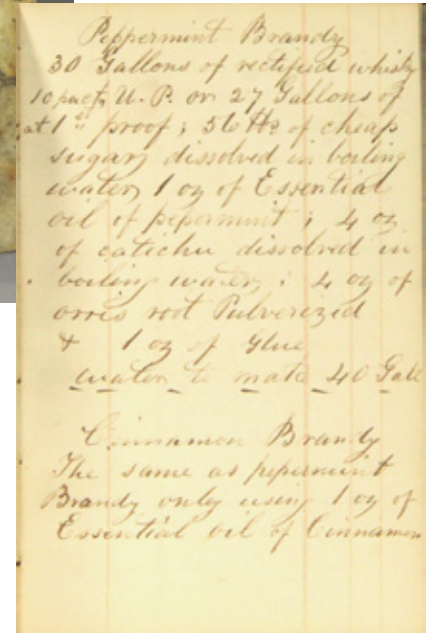 Peppermint Brandy
30 Gallons of rectified whisky
10 U. P. or 27 Gallons of
at 1 proof; 56 lbs of cheap
sugar dissolved in boiling
water, 1 oz of Essential
oil of pepermint; 4 oz
of catechu dissolved in
boiling water; 4 oz of
orris root Pulverized
& 1 oz of Glue
water to make 40 Gall
Cinnamon Brandy
The same as pepermint
Brandy only using 1 oz of
Essential oil of Cinnamon